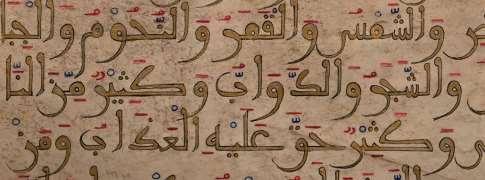 ض والشمس والقمر والنجوم والجبا
والشجر والدواب وكثير من النا
س وكثير حق عليه العذاب ومن